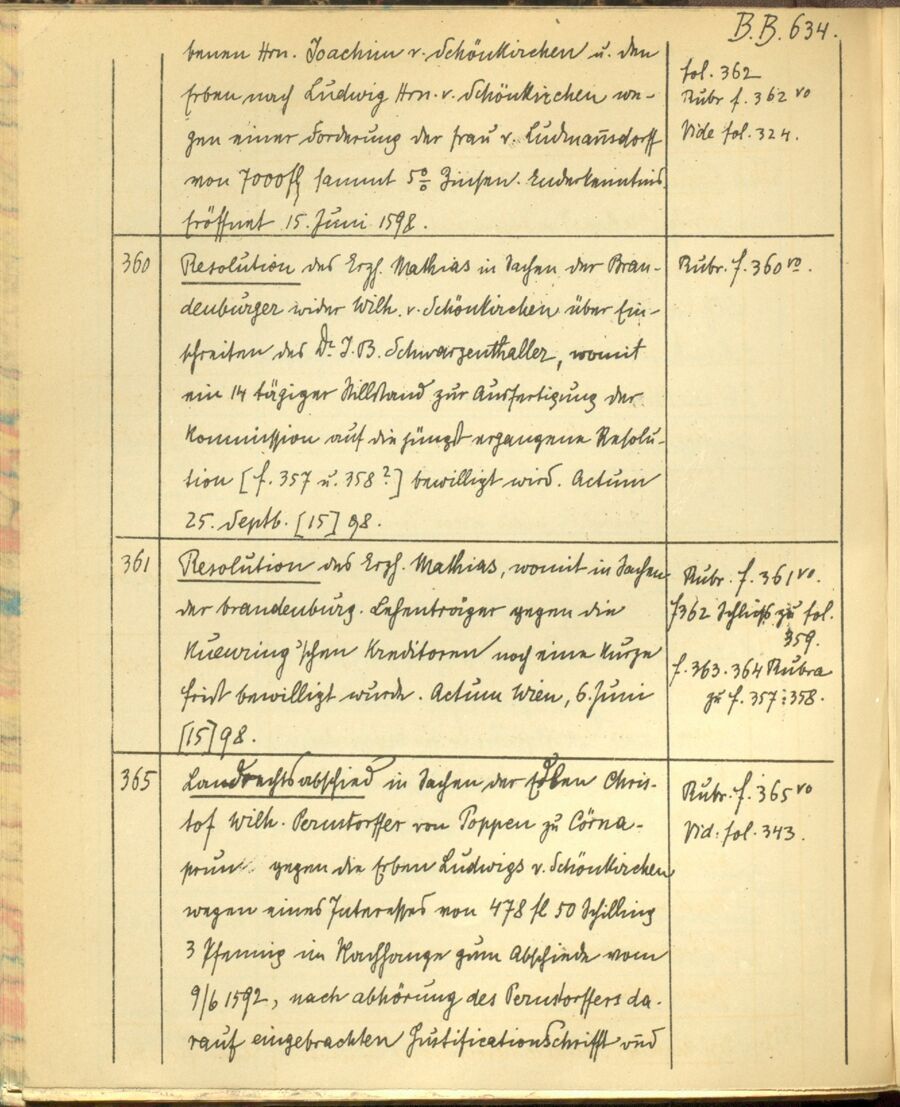 B.B. 634.
benen Hrn. Joachim v. Schönkirchen u. den
Erben nach Ludwig Hrn. v. Schönkirchen we-
gen einer Forderung der Frau v. Ludmannsdorff
von 7000 fl sammt 5% Zinsen. Enderkenntnis
Eröffnet 15. Juni 1598.
fol. 362
Rubr f. 362 vo
Vide fol. 324.
360
Resolution des Erzh. Mathias in Sachen der Bran-
denburger wider Wilh. v. Schönkirchen über Ein-
schreiten des Dr. J. B. Schwarzenthaller, womit
ein 14 tägiger Stillstand zur Ausfertigung der
Kommission auf die jüngst ergangene Resolu-
tion [f. 357 u. 358?] bewilligt wird. Actum
25. Septb. [15]98.
Rubr. f. 360 vo.
361
Resolution des Erzh. Mathias, womit in Sachen
der brandenburg. Lehenträger gegen die
Kuenring'schen Kreditoren noch eine kurze
Frist bewilligt wurde. Actum Wien, 6. Juni
[15]98.
Rubr. f. 361 vo.
f 362 Schluß zu fol.
359.
f. 363. 364 Rubra
zu f. 357 : 358.
365
Landrechtsabschied in Sachen der Erben Chris-
tof Wilh. Perndorffer von Poppen zu Cörna-
prun gegen die Erben Ludwigs v. Schönkirchen
wegen eines Interesses von 478 fl 50 Schilling
3 Pfennig im Nachhange zum Abschiede vom
9/6 1592, nach abhörung des Perndorffers da-
rauf eingebrachten Justificationschrifft und
Rubr. f. 365 vo
Vid: fol. 343.